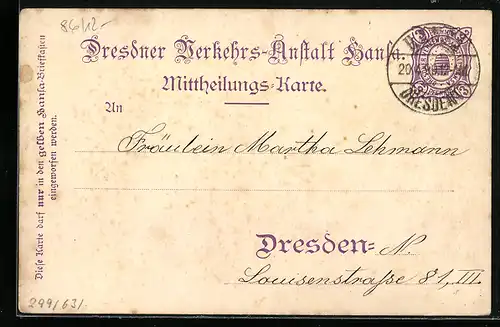 8612-
Dresdner Verkehrs-Anstalt Hansa.
Mittheilungs-Karte.
An
Fräulein Martha Lehmann
Dresden-N.
Louisenstraſse 81, III.
Diese Karte darf nur in den gelben Hansa-Briefkasten
eingeworfen werden.
299/63/
20
DRESDEN
3
3